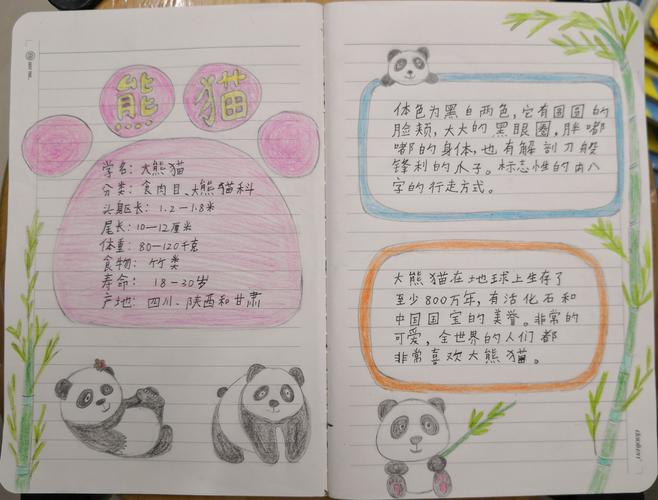 熊猫
学名：大熊猫
分类：食肉目、大熊猫科
头躯长：1.2—1.8米
尾长：10—12厘米
体重：80—120千克
食物：竹类
寿命：18—30岁
产地：四川、陕西和甘肃
体色为黑白两色，它有圆圆的
脸颊，大大的黑眼圈，胖嘟
嘟的身体，也有解剖刀般
锋利的爪子。标志性的内八
字的行走方式。
大熊猫在地球上生存了
至少800万年，有活化石和
中国国宝的美誉。非常的
可爱，全世界的人们都
非常喜欢大熊猫。